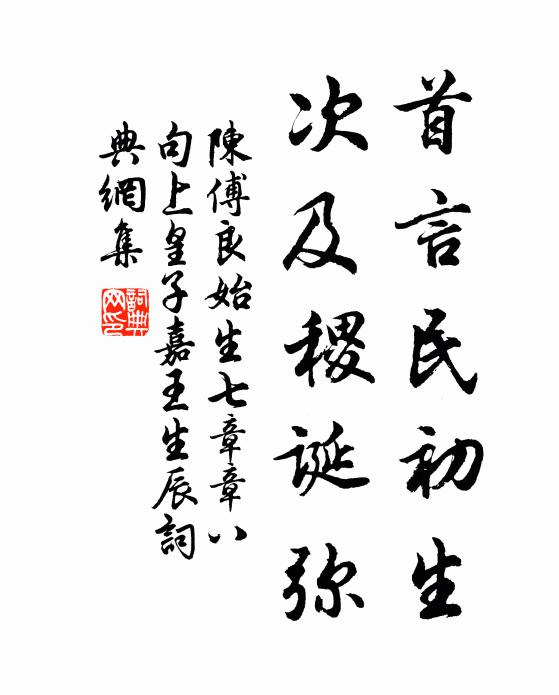 首言民初生
次及稷诞弥
陳傅良始生七章章八
句上皇子嘉王生辰詞
典網集
詞典
网印